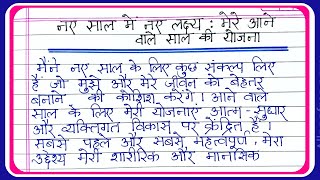 नए साल में नए लक्ष्य : मेरे आने
वाले साल की योजना
मैंने नए साल के लिए कुछ संकल्प लिए
हैं जो मुझे और मेरे जीवन को बेहतर
बनाने की कोशिश करेंगे। आने वाले
साल के लिए मेरी योजनाएं आत्म-सुधार
और व्यक्तिगत विकास पर केंद्रित हैं।
सबसे पहले और सबसे महत्वपूर्ण, मेरा
उद्देश्य मेरी शारीरिक और मानसिक